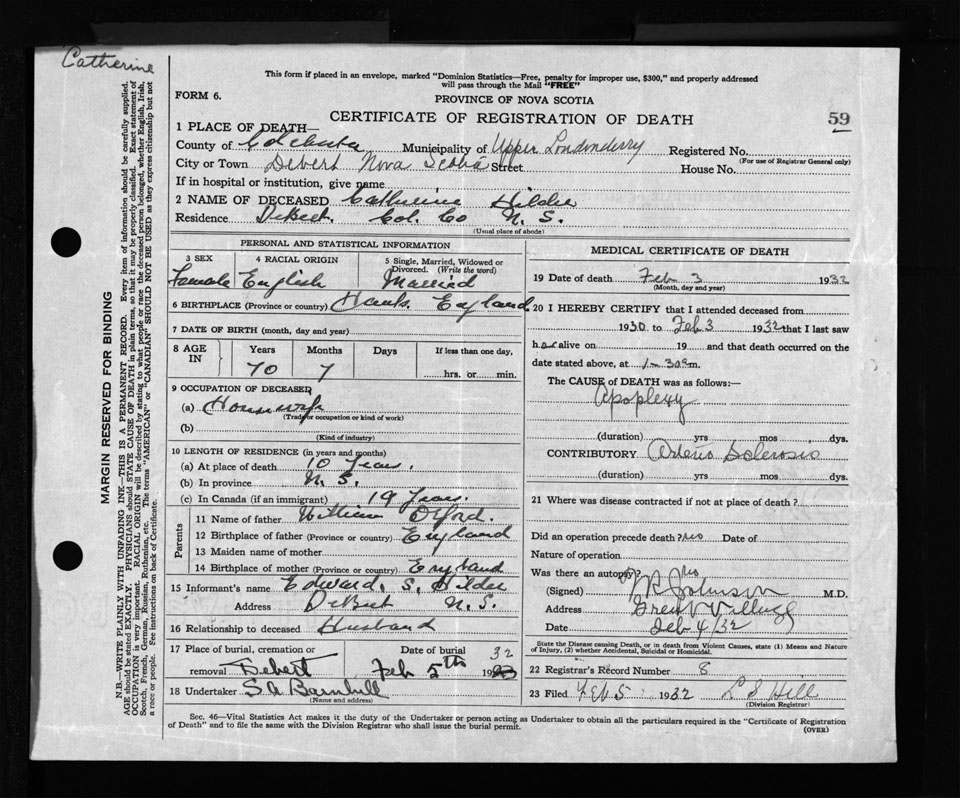 Catherine
This form if placed in an envelope, marked "Dominion Statistics—Free, penalty for improper use, $300," and properly addressed
will pass through the Mail "FREE"
FORM 6.
PROVINCE OF NOVA SCOTIA
CERTIFICATE OF REGISTRATION OF DEATH
59
1 PLACE OF DEATH—
County of Colchester Municipality of Upper Londonderry Registered No.
(For use of Registrar General only)
City or Town Debert Nova Scotia Street House No.
If in hospital or institution, give name
2 NAME OF DECEASED Catherine Hilder
Residence Debert. Col. Co N. S.
(Usual place of abode)
PERSONAL AND STATISTICAL INFORMATION
3 SEX 4 RACIAL ORIGIN 5 Single, Married, Widowed or
Divorced. (Write the word)
Female English Married
6 BIRTHPLACE (Province or country) Hants. England
7 DATE OF BIRTH (month, day and year)
8 AGE IN Years Months Days If less than one day,
70 7 hrs. or min.
9 OCCUPATION OF DECEASED
(a) Housewife
(Trade or occupation or kind of work)
(b)
(Kind of industry)
10 LENGTH OF RESIDENCE (in years and months)
(a) At place of death 10 Years.
(b) In province N. S.
(c) In Canada (if an immigrant) 19 Years.
Parents
11 Name of father William Orford.
12 Birthplace of father (Province or country) England
13 Maiden name of mother
14 Birthplace of mother (Province or country) England
15 Informant's name Edward. S. Hilder
Address Debert N. S.
16 Relationship to deceased Husband
17 Place of burial, cremation or Date of burial 32
removal Debert Feb 5th 19
18 Undertaker S.A. Barnhill
(Name and address)
MEDICAL CERTIFICATE OF DEATH
19 Date of death Feb 3 1932
(Month, day and year)
20 I HEREBY CERTIFY that I attended deceased from
1930 to Feb 3 1932 that I last saw
h alive on 19 and that death occurred on the
date stated above, at 1-30 a m.
The CAUSE of DEATH was as follows:—
Apoplexy
(duration) yrs mos dys.
CONTRIBUTORY Arterio Sclerosis
(duration) yrs mos dys.
21 Where was disease contracted if not at place of death?
Did an operation precede death? no Date of
Nature of operation
Was there an autopsy? no
(Signed) Johnson M.D.
Address Great Village
Date Feb 4/32
State the Disease causing Death, or in death from Violent Causes, state (1) Means and Nature
of Injury, (2) whether Accidental, Suicidal or Homicidal.
22 Registrar's Record Number 8
23 Filed Feb 5 1932 L S Hill
(Division Registrar)
Sec. 46—Vital Statistics Act makes it the duty of the Undertaker or person acting as Undertaker to obtain all the particulars required in the "Certificate of Registration
of Death" and to file the same with the Division Registrar who shall issue the burial permit.
(OVER)
MARGIN RESERVED FOR BINDING
N.B.—WRITE PLAINLY WITH UNFADING INK—THIS IS A PERMANENT RECORD. Every item of information should be carefully supplied.
AGE should be stated EXACTLY. PHYSICIANS should STATE CAUSE OF DEATH in plain terms, so that it may be properly classified. Exact statement of
OCCUPATION is very important. RACIAL ORIGIN will be described by stating to what people or race the deceased person belonged, whether English, Irish,
Scotch, French, German, Russian, Ruthenian, etc. The terms "AMERICAN" or "CANADIAN" SHOULD NOT BE USED as they express citizenship but not
a race or people. See instructions on back of Certificate.